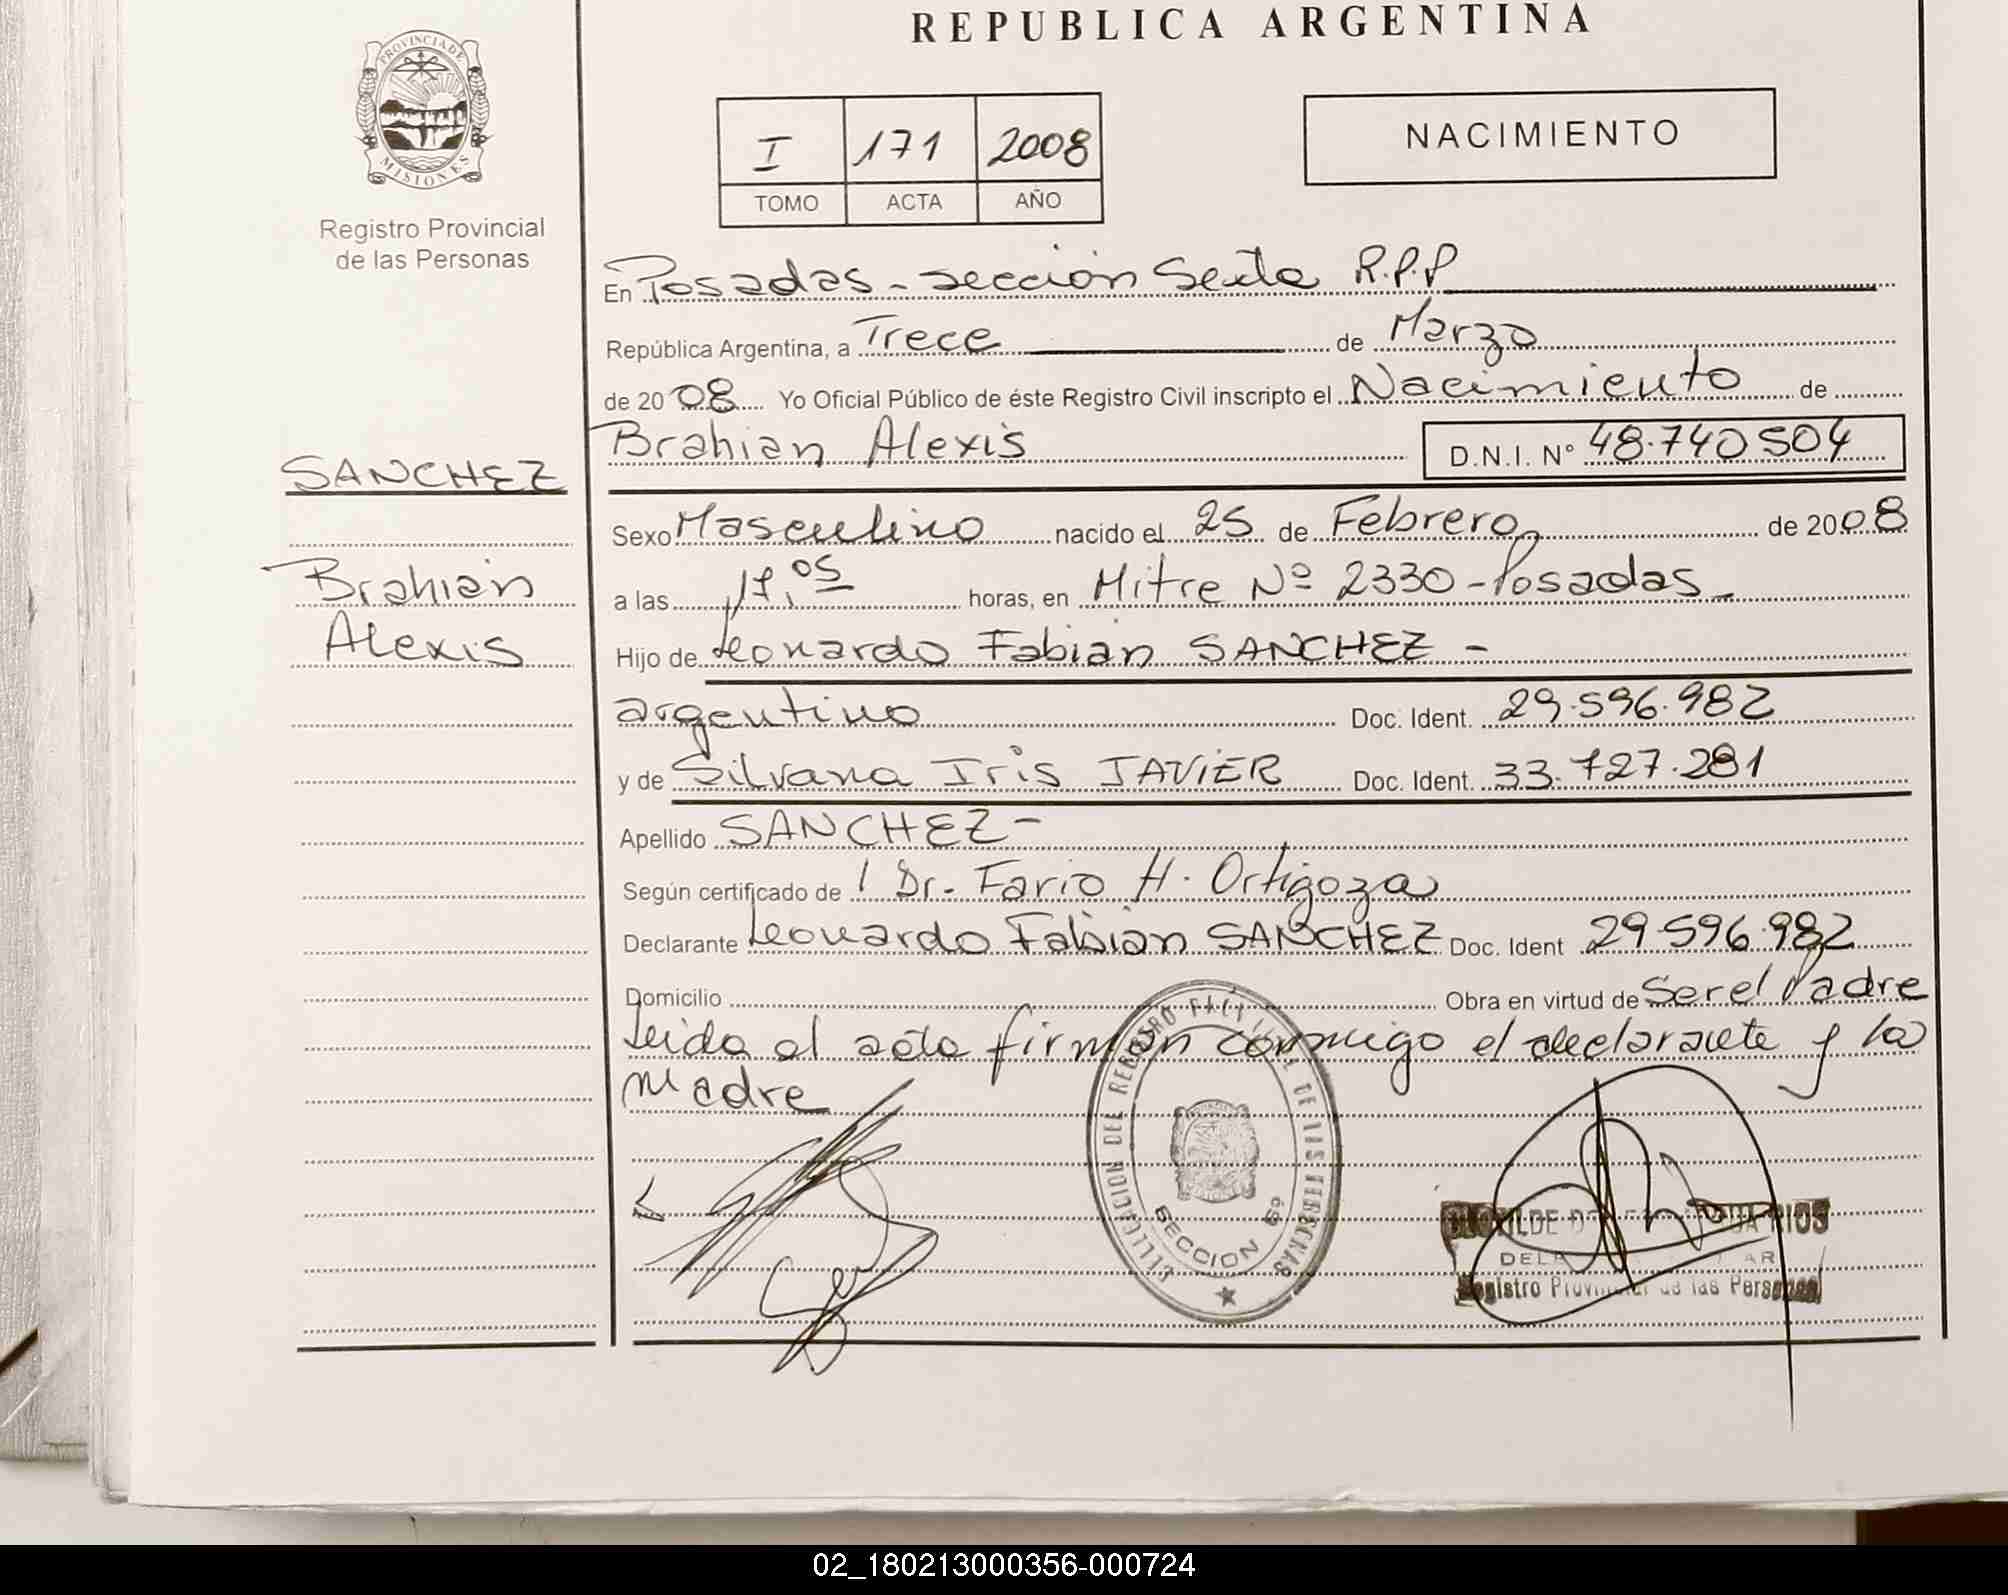 REPUBLICA ARGENTINA
PROVINCIA DE
MISIONES
Registro Provincial
de las Personas
I 171 2008
TOMO ACTA AÑO
NACIMIENTO
En Posadas - sección Sexta R.P.P
República Argentina, a Trece de Marzo
de 2008 Yo Oficial Público de éste Registro Civil inscripto el Nacimiento de
Brahian Alexis D.N.I. N° 48.740504
SANCHEZ
Brahian
Alexis
Sexo Masculino nacido el 25 de Febrero de 2008
a las 17,05 horas, en Mitre Nº 2330 - Posadas
Hijo de Leonardo Fabian SANCHEZ -
argentino Doc. Ident. 29.596.982
y de Silvana Iris JAVIER Doc. Ident. 33.727.281
Apellido SANCHEZ -
Según certificado de Dr. Fario H. Ortigoza
Declarante Leonardo Fabian SANCHEZ Doc. Ident 29.596.982
Domicilio Obra en virtud de Ser el Padre
Leida el acta firman conmigo el declarante y la
Madre
DEL REGISTRO DE LAS PERSONAS
SECCION 6º
Registro Provincial de las Personas
02_180213000356-000724